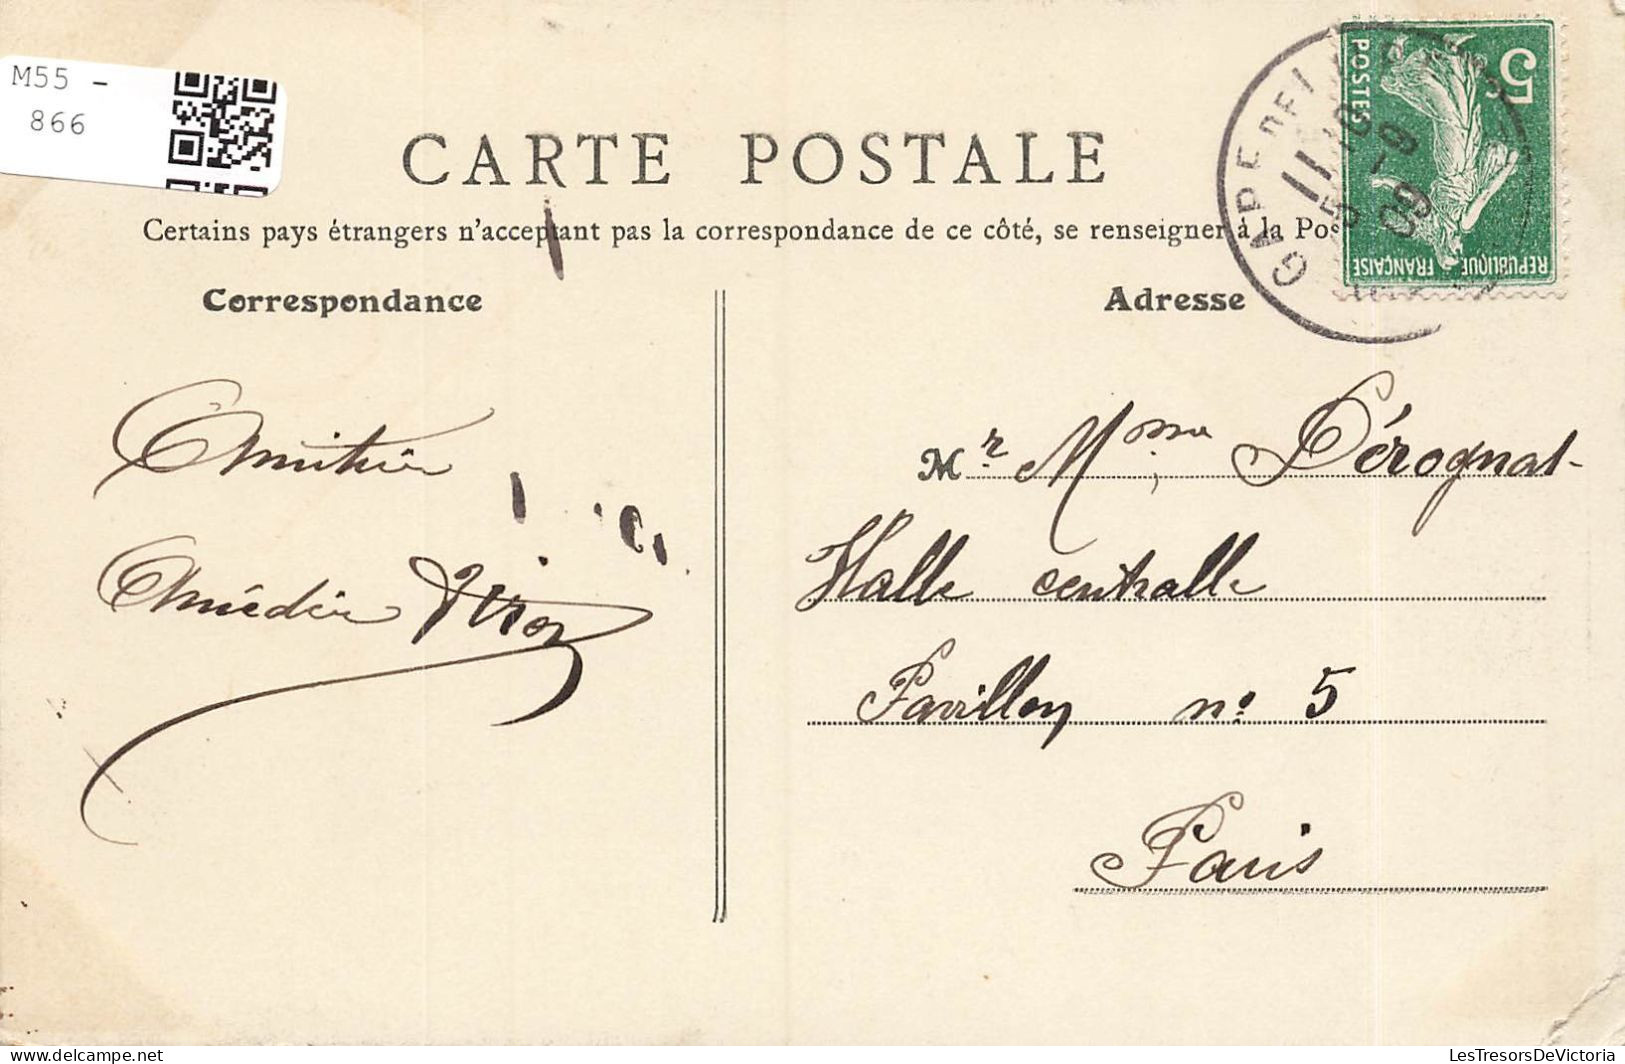 M55 -
866
CARTE POSTALE
Certains pays étrangers n'acceptant pas la correspondance de ce côté, se renseigner à la Pos
Correspondance
Adresse
5c
POSTES
REPUBLIQUE FRANÇAISE
GARE DE
11
5 -9
09
Amitiés
Amédée
Mr. Mme Pérognat
Halle centralle
Pavillon no 5
Paris
delcampe.net
LesTresorsDeVictoria